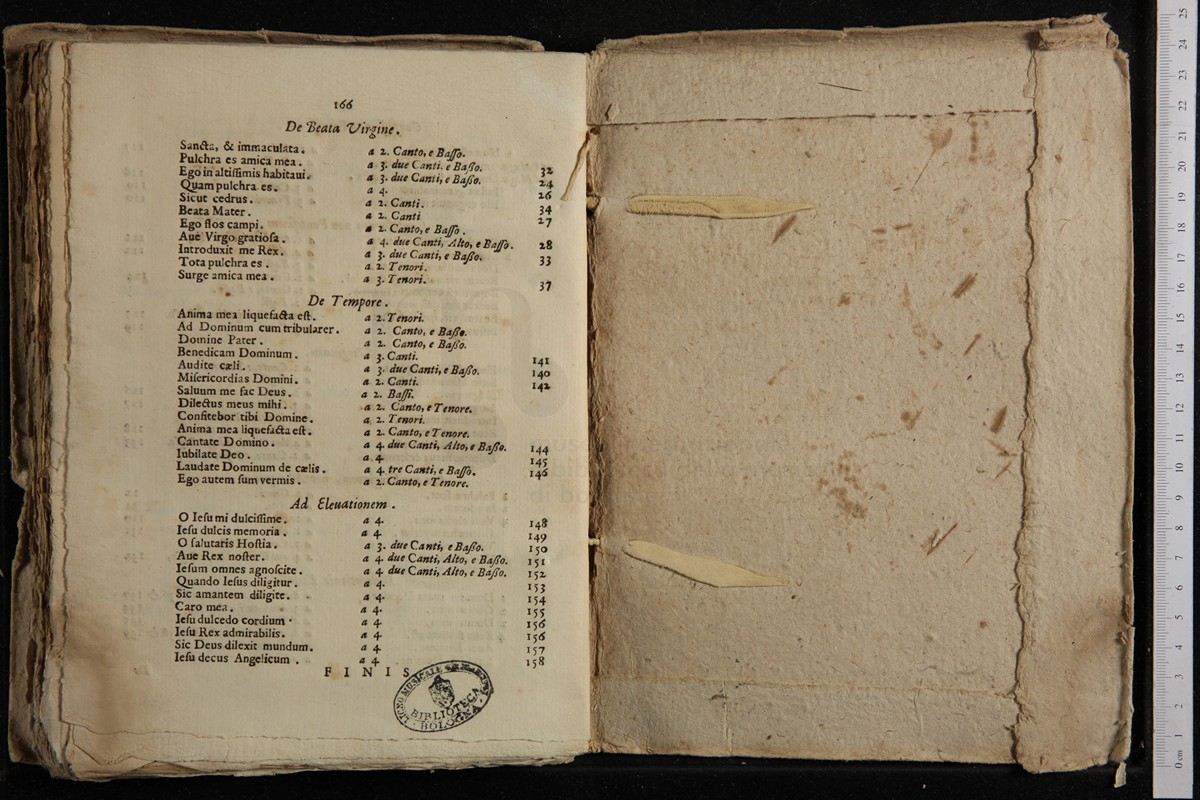 166
De Beata Virgine.
Sancta, & immaculata. a 2. Canto, e Baſſo.
Pulchra es amica mea. a 3. due Canti. e Baſſo. 32
Ego in altiſſimis habitaui. a 3. due Canti, e Baſſo. 24
Quam pulchra es. a 4. 26
Sicut cedrus. a 2. Canti. 34
Beata Mater. a 2. Canti 27
Ego flos campi. a 2. Canto, e Baſſo.
Aue Virgo gratioſa. a 4. due Canti, Alto, e Baſſo. 28
Introduxit me Rex. a 3. due Canti, e Baſſo. 33
Tota pulchra es. a 2. Tenori.
Surge amica mea. a 3. Tenori. 37
De Tempore.
Anima mea liquefacta eſt. a 2. Tenori.
Ad Dominum cum tribularer. a 2. Canto, e Baſſo.
Domine Pater. a 2. Canto, e Baſſo.
Benedicam Dominum. a 3. Canti. 141
Audite cæli. a 3. due Canti, e Baſſo. 140
Miſericordias Domini. a 2. Canti. 142
Saluum me fac Deus. a 2. Baſſi.
Dilectus meus mihi. a 2. Canto, e Tenore.
Confitebor tibi Domine. a 2. Tenori.
Anima mea liquefacta eſt. a 2. Canto, e Tenore.
Cantate Domino. a 4. due Canti, Alto, e Baſſo. 144
Iubilate Deo. a 4 145
Laudate Dominum de cælis. a 4. tre Canti, e Baſſo. 146
Ego autem ſum vermis. a 2. Canto, e Tenore.
Ad Eleuationem.
O Ieſu mi dulciſſime. a 4. 148
Ieſu dulcis memoria. a 4 149
O ſalutaris Hoſtia. a 3. due Canti, e Baſſo. 150
Aue Rex noſter. a 4. due Canti, Alto, e Baſſo. 151
Ieſum omnes agnoſcite. a 4 due Canti, Alto, e Baſſo. 152
Quando Ieſus diligitur. a 4. 153
Sic amantem diligite. a 4. 154
Caro mea. a 4. 155
Ieſu dulcedo cordium. a 4 156
Ieſu Rex admirabilis. a 4 156
Sic Deus dilexit mundum. a 4 157
Ieſu decus Angelicum. a 4 158
FINIS
LICEO MUSICALE
BIBLIOTECA
BOLOGNA